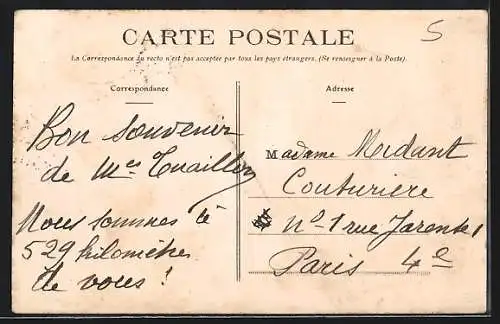 CARTE POSTALE
5
La Correspondance au recto n'est pas acceptée par tous les pays étrangers. (Se renseigner à la Poste).
Correspondance
Bon souvenir
de
Nous sommes à
529 kilomètres
de vous !
Adresse
Madame Mordant
Couturière
N° 1 rue Jarente
Paris 4e